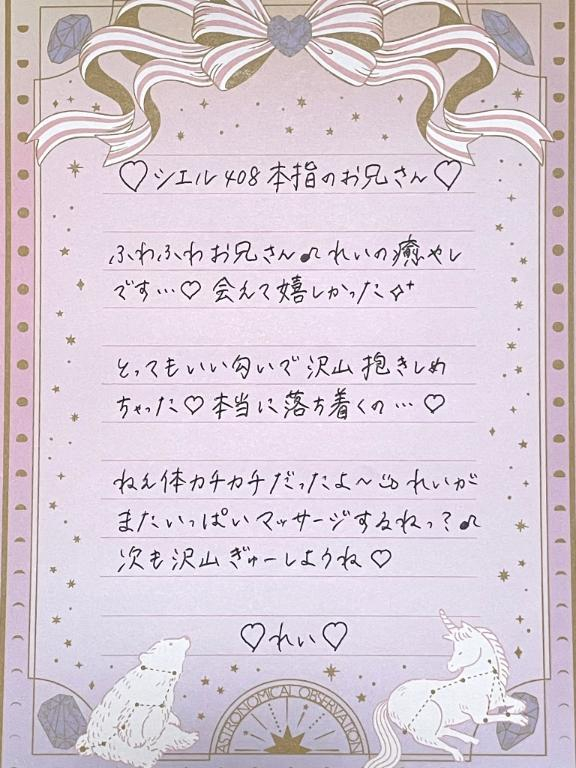 ♡シエル408本指のお兄さん♡
ふわふわお兄さん♪れいの癒やし
です…♡ 会えて嬉しかった✧⁺
とってもいい匂いで沢山抱きしめ
ちゃった♡本当に落ち着くの…♡
ねえ体カチカチだったよ〜♨ れいが
またいっぱいマッサージするねっ?♪
次も沢山ぎゅーしようね♡
♡れい♡
ASTRONOMICAL OBSERVATION